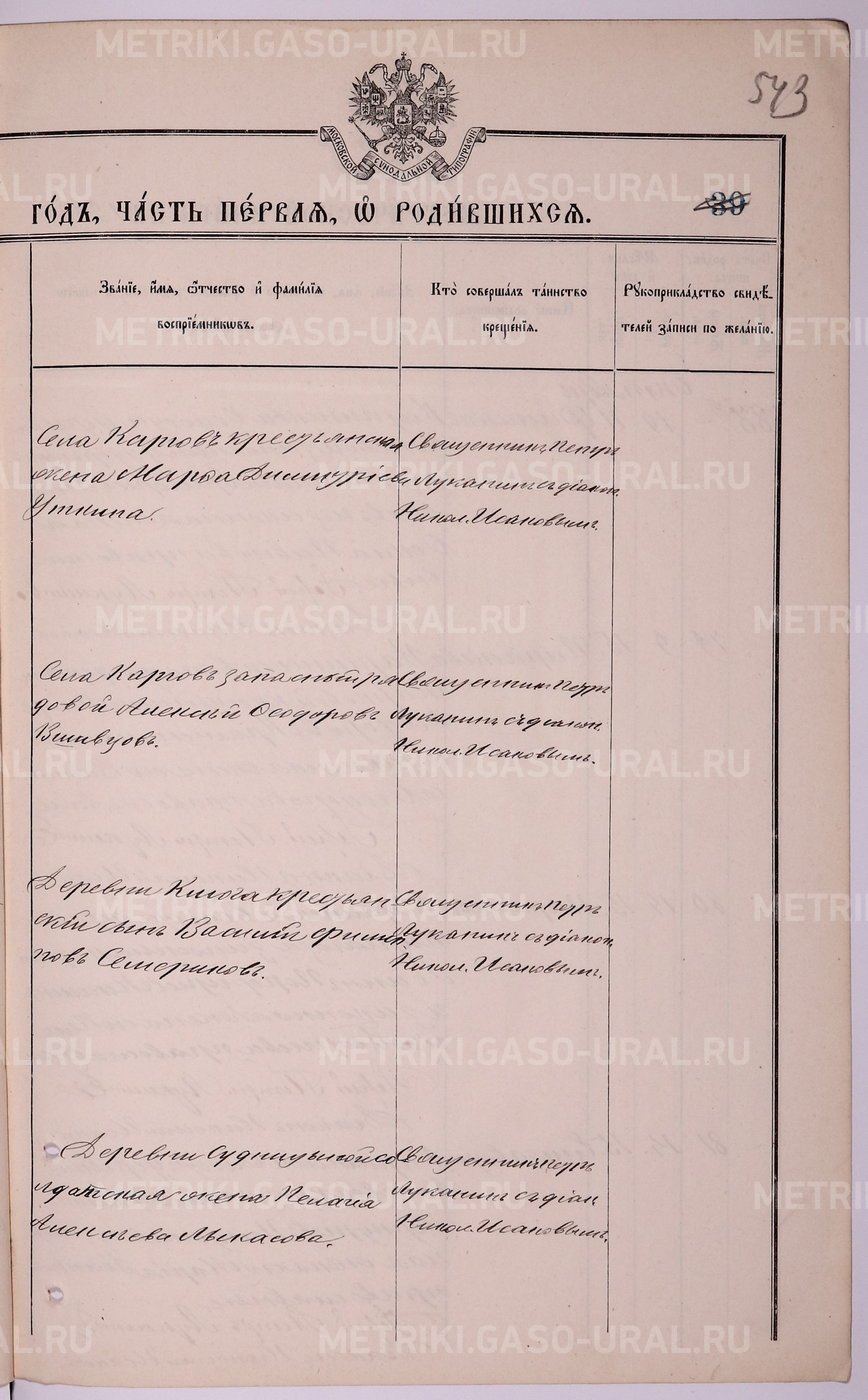 METRIKI.GASO-URAL.RU
543
МОСКОВСКОЙ СУНОДАЛЬНОЙ ТИПОГРАФІИ
го́дъ, ча́сть пе́рвая, ѡ҆ роди́вшихся.
39
Зва́нїе, и҆́мя, ѻ҆́тчество и҆ фами́лїя
воспрїе́мникѡвъ.
Кто̀ соверша́лъ та́инство
креще́нїя.
Рꙋкоприкла́дство свидѣ́-
телей за́писи по жела́нїю.
Села Карговъ крестьянская
жена Марѳа Димитріева
Уткина.
Священникъ Петръ
Луканинъ съ діакон.
Никол. Исаковымъ.
Села Карговъ запасный ря
довой Алексѣй Ѳеодоровъ
Вшивцовъ.
Священникъ Петръ
Луканинъ съ діакон.
Никол. Исаковымъ.
Деревни крестьян
скій сынъ Василій Филип
повъ Семериковъ.
Священникъ Петръ
Луканинъ съ діакон.
Никол. Исаковымъ.
Деревни со
лдатская жена Пелагія
Алексѣева Лыкасова.
Священникъ Петръ
Луканинъ съ діак.
Никол. Исаковымъ.